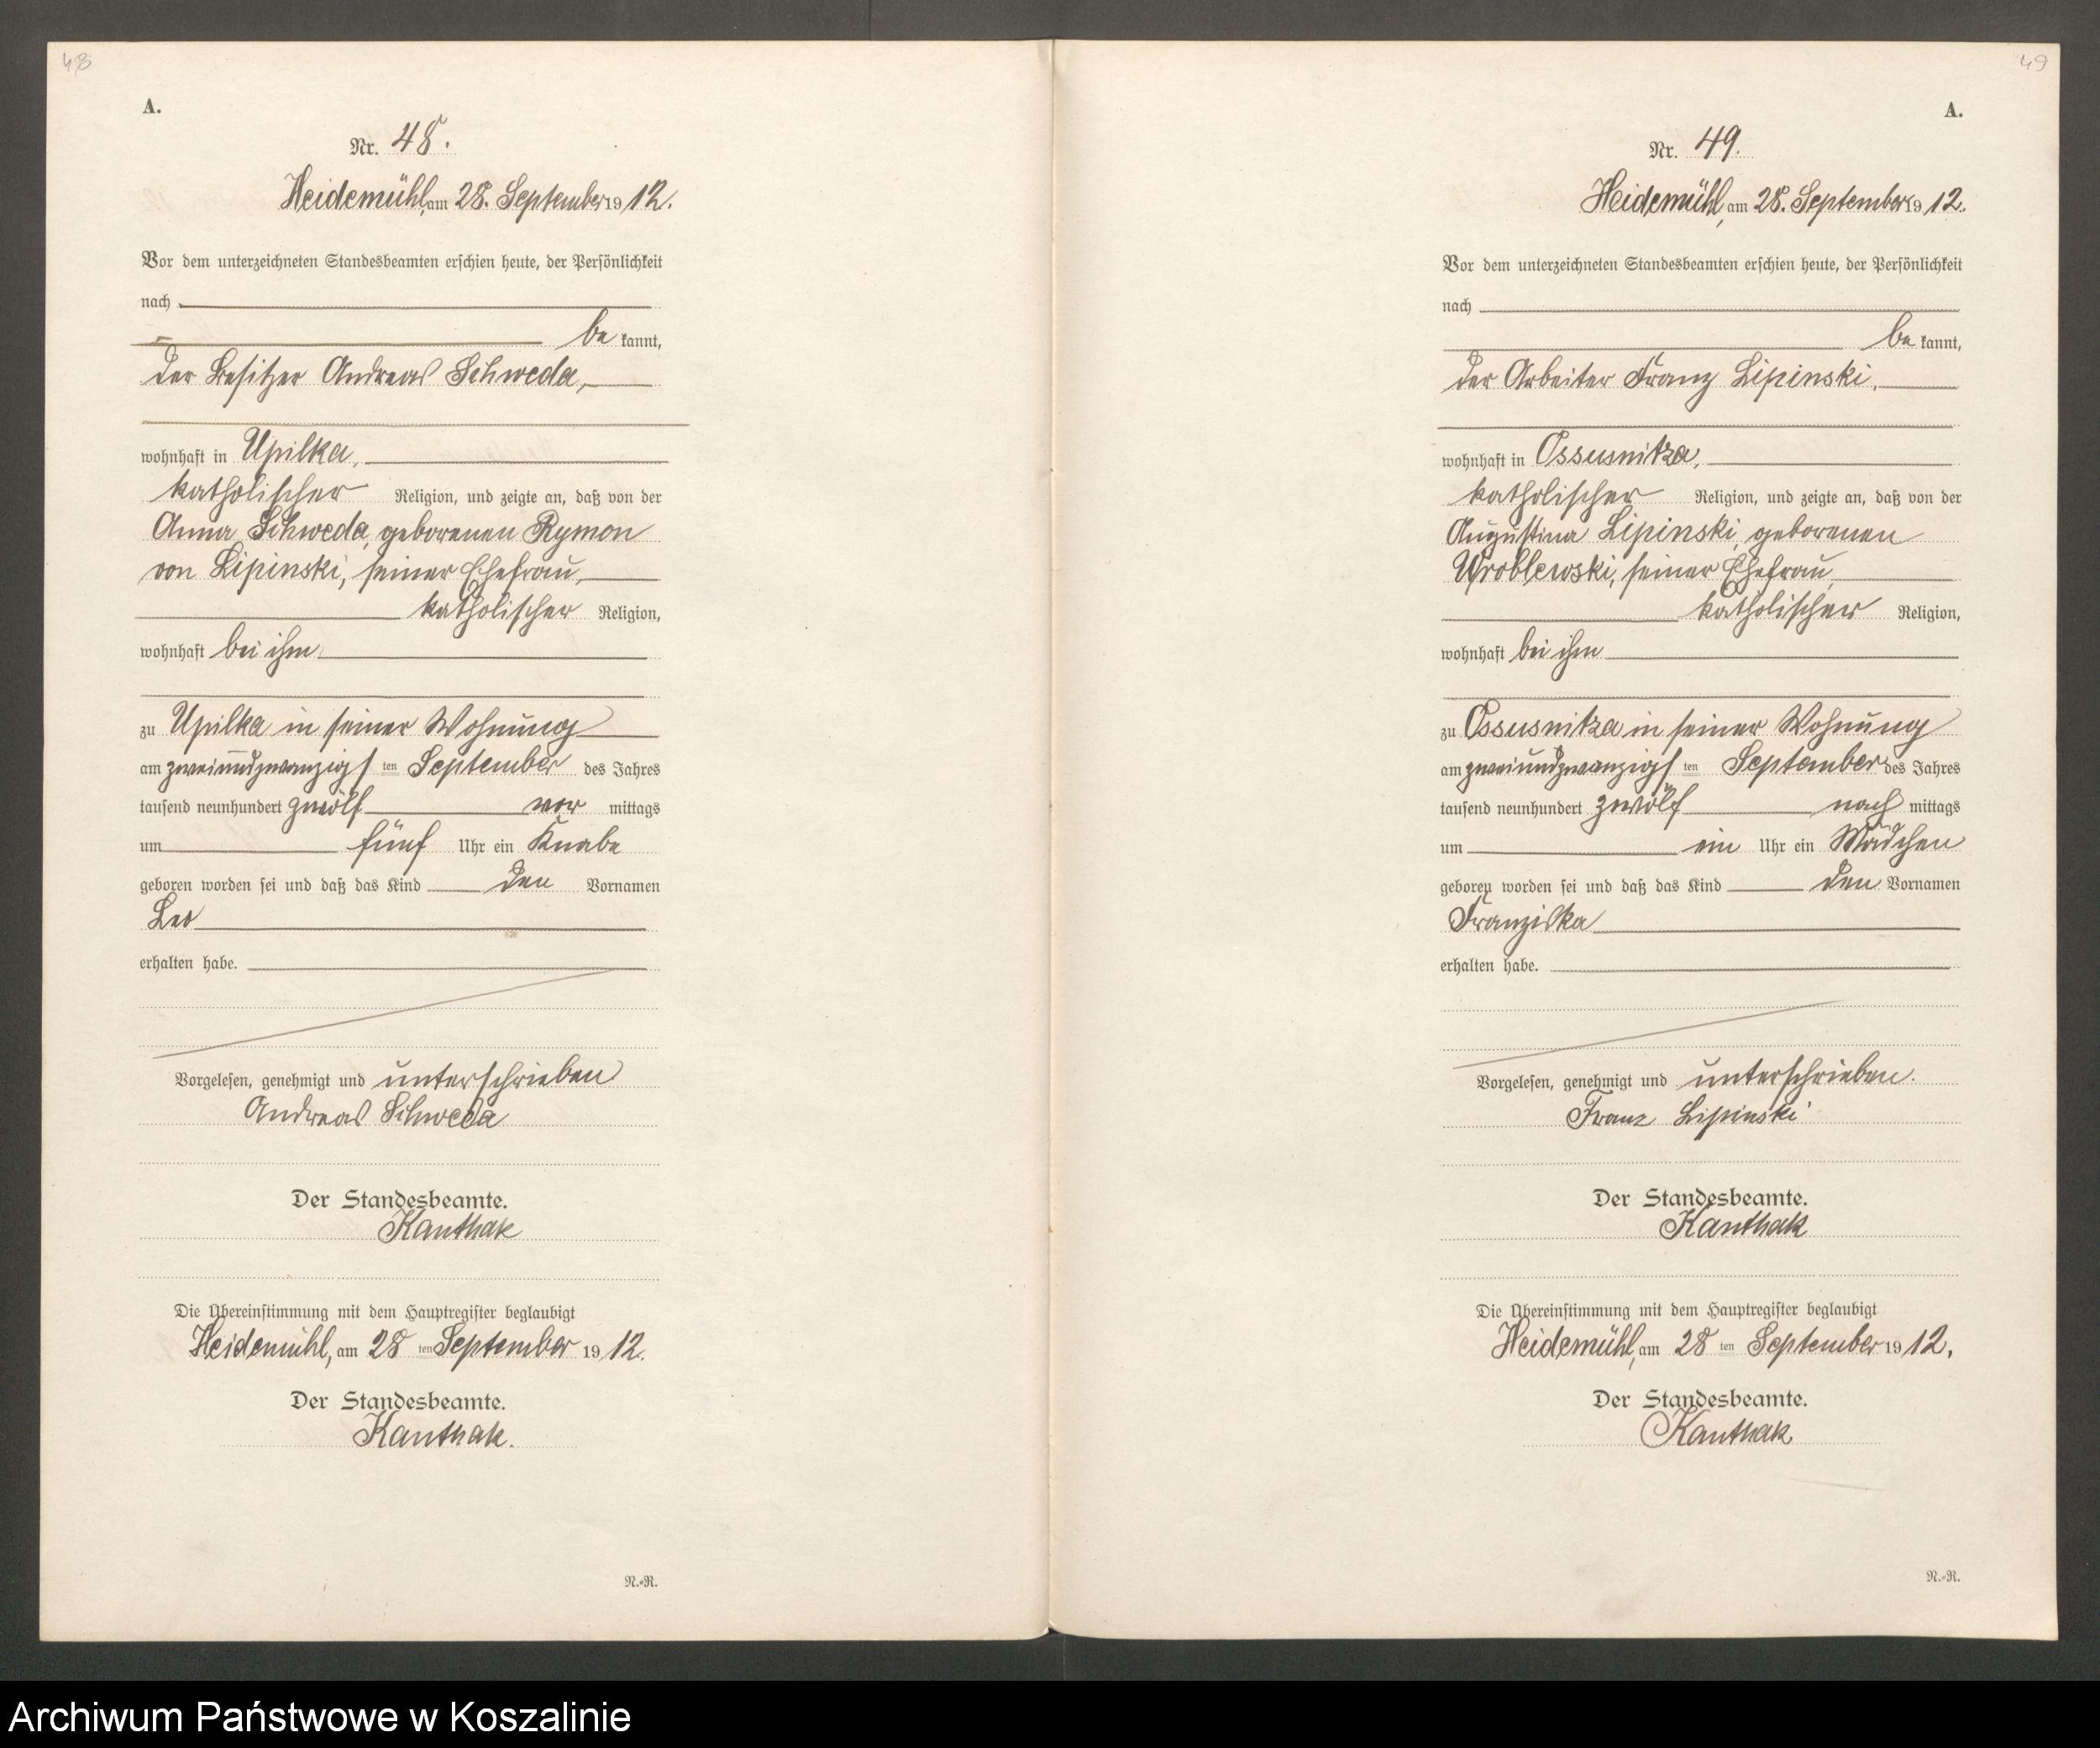 48
A.
Nr. 48.
Heidemühl, am 28. September 1912.
Vor dem unterzeichneten Standesbeamten erschien heute, der Persönlichkeit
nach
be kannt,
der Besitzer Andreas Schweda,
wohnhaft in Upilka,
katholischer Religion, und zeigte an, daß von der
Anna Schweda, geborenen Rymon
von Lipinski, seiner Ehefrau,
katholischer Religion,
wohnhaft bei ihm
zu Upilka in seiner Wohnung
am zweiundzwanzigsten September des Jahres
tausend neunhundert zwölf vor mittags
um fünf Uhr ein Knabe
geboren worden sei und daß das Kind den Vornamen
Leo
erhalten habe.
Vorgelesen, genehmigt und unterschrieben
Andreas Schweda
Der Standesbeamte.
Kanthak
Die Übereinstimmung mit dem Hauptregister beglaubigt
Heidemühl, am 28 ten September 1912.
Der Standesbeamte.
Kanthak.
N.-R.
49
A.
Nr. 49.
Heidemühl, am 28. September 1912.
Vor dem unterzeichneten Standesbeamten erschien heute, der Persönlichkeit
nach
be kannt,
der Arbeiter Franz Lipinski,
wohnhaft in Ossusnitza,
katholischer Religion, und zeigte an, daß von der
Augustina Lipinski, geborenen
Wroblewski, seiner Ehefrau
katholischer Religion,
wohnhaft bei ihm
zu Ossusnitza in seiner Wohnung
am zweiundzwanzigsten September des Jahres
tausend neunhundert zwölf nach mittags
um ein Uhr ein Mädchen
geboren worden sei und daß das Kind den Vornamen
Franziska
erhalten habe.
Vorgelesen, genehmigt und unterschrieben.
Franz Lipinski
Der Standesbeamte.
Kanthak
Die Übereinstimmung mit dem Hauptregister beglaubigt
Heidemühl, am 28 ten September 1912.
Der Standesbeamte.
Kanthak
N.-R.
Archiwum Państwowe w Koszalinie